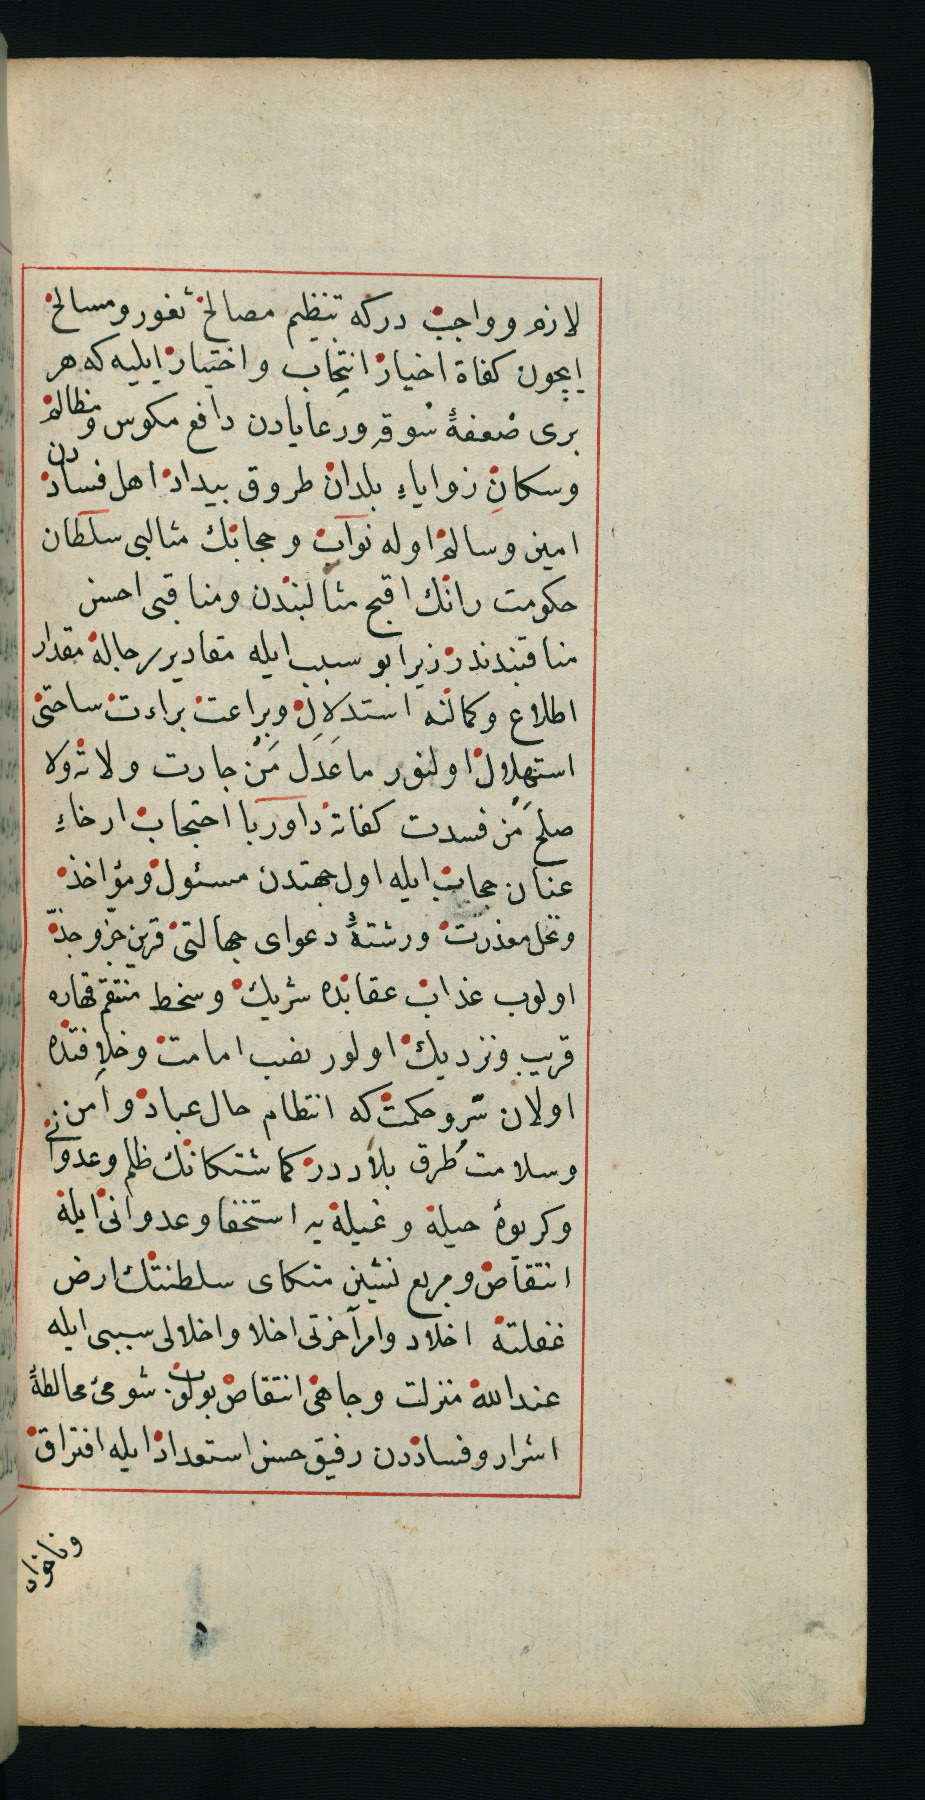 لازم و واجب در كه تنظيم مصالح ثغور و مسالح
ايچون كفاة اخيار انتخاب و اختيار ايليه كه هر
برى ضعفۀ سوقه و رعايادن دافع مكوس و مظالم
و سكان زواياء بلدان طروق بيداد اهل فساددن
امين و سالم اوله نواب و حجابنك مثالبى سلطان
حكومت رانك اقبح مثالبندن و مناقبى احسن
مناقبندندر زيرا بو سبب ايله مقادير رجاله مقدار
اطلاع و كمالنه استدلال و براعت براءت ساحتى
استهلال اولنور ما عَدَلَ مَنْ جارت ولاته ولا
صلح مَنْ فسدت كفاته داور با احتجاب ارخاء
عنان حجاب ايله اول جهتدن مسئول و مؤاخذ
و نحل معذرت و رشتۀ دعواى جهالتى قرين جزّ و جذّ
اولوب عذاب عقابده شريك و سخط منتقم قهاره
قريب و نزديك اولور نصب امامت و خلافتده
اولان سرّ و حكمت كه انتظام حال عباد و امن
و سلامت طُرق بلاددر كماشتكانك ظلم و عدوانى
و كريوۀ حيله و غيله يه استخفا و عدوانى ايله
انتقاص و مربع نشين متكاى سلطنتك ارض
غفلته اخلاد و امر آخرتى اخلا و اخلالى سببى ايله
عند الله منزلت و جاهى انتقاص بولوب شومئ مخالطۀ
اشرار و فساددن رفيق حسن استعداد ايله افتراق